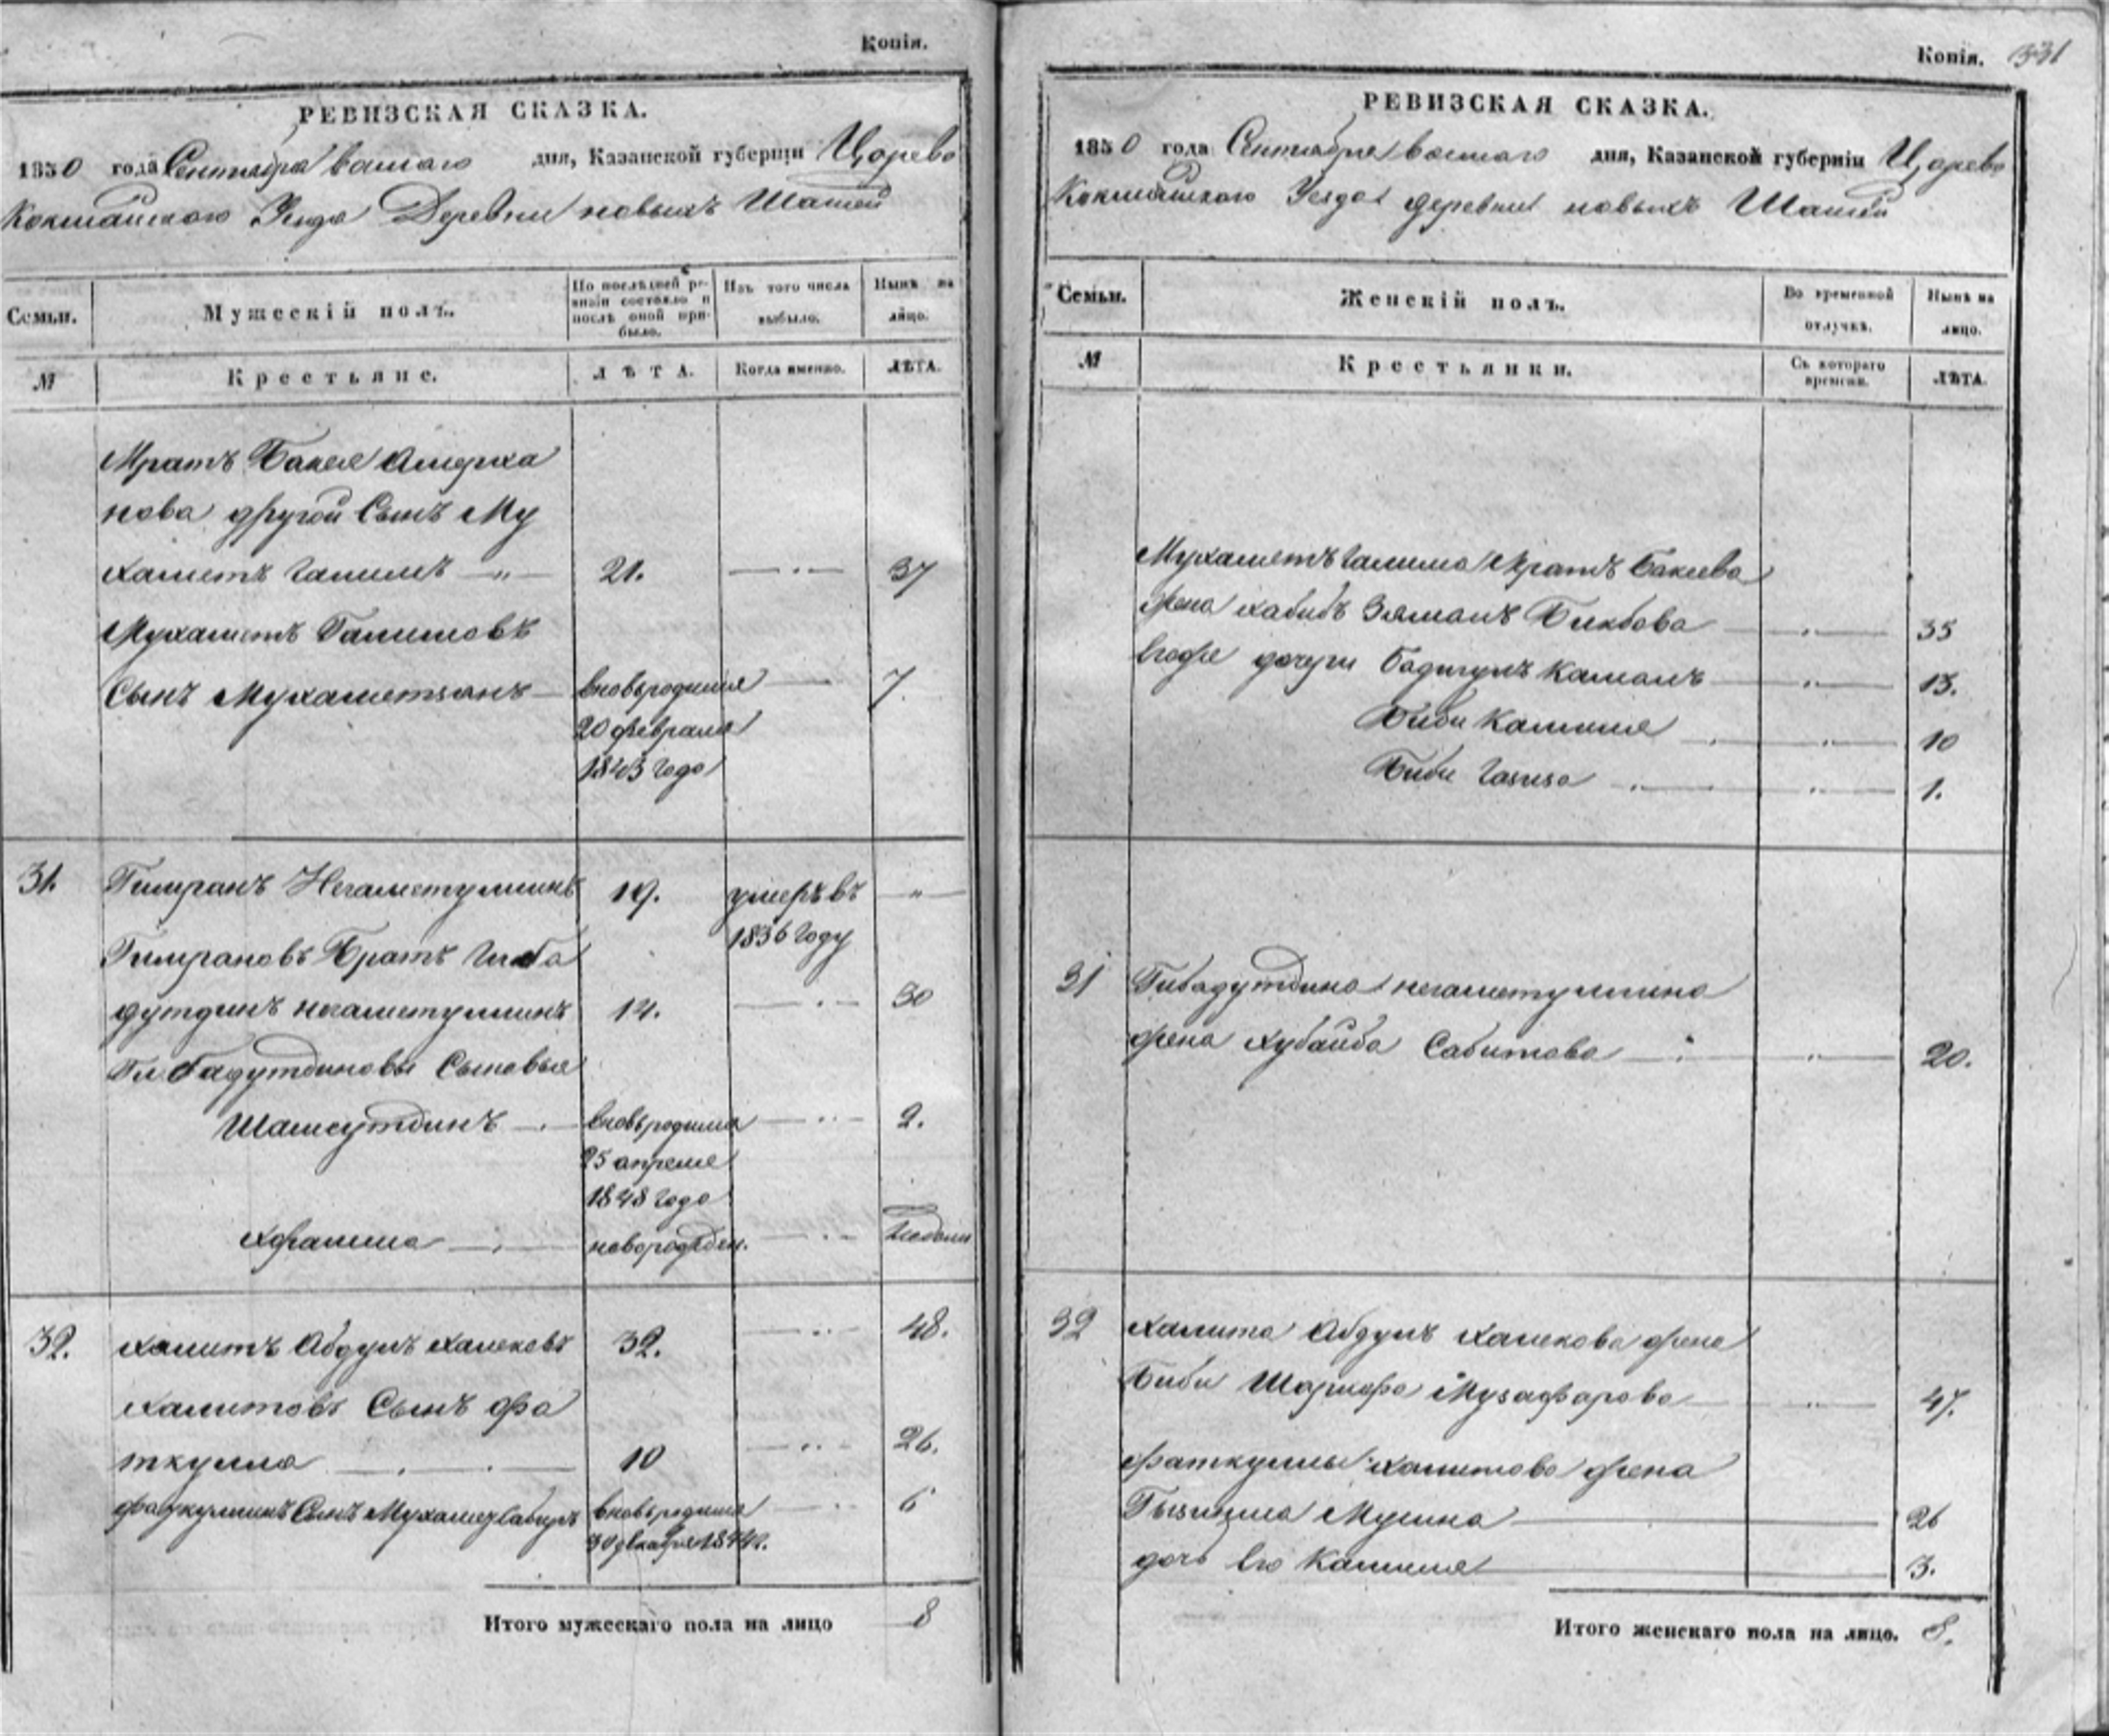 Копія.
РЕВИЗСКАЯ СКАЗКА.
1850 года Сентября дня, Казанской губерніи Царево
Кокшайскаго Уезда Деревни новыхъ Шашей
Семьи.
Мужескій полъ.
По послѣдней ре-
визіи состояло и
послѣ оной при-
было.
Изъ того числа
выбыло.
Нынѣ на
лицо.
№
Крестьяне.
ЛѢТА.
Когда именно.
ЛѢТА.
Мратъ Бакея Амерха
нова другой Сынъ Му
хаметъ Галимъ 21. 37
Мухаметъ Галимовъ
Сынъ Мухаметзянъ вновьродился 7.
20 февраля
1843 года
31. Гимранъ Негаметуллинъ 19. умеръ въ
1836 году
Гимрановъ Братъ Гиба
дутдинъ негаметуллинъ 14. 30
Гибадутдиновы Сыновья
Шамсутдинъ вновьродился 2.
25 апреля
1848 года
новорожден.
32. Халитъ Абдулъ Халековъ 32. 48.
Халитовъ Сынъ Фа
ткулла 10 26.
Фаткуллинъ Сынъ Мухаметсабиръ вновьродился 6
30 декабря 1844.
Итого мужескаго пола на лицо 8
Копія. 331
РЕВИЗСКАЯ СКАЗКА.
1850 года Сентября дня, Казанской губерніи Царево
Кокшайскаго Уезда деревни новыхъ Шашей
Семьи.
Женскій полъ.
Во временной
отлучкѣ.
Нынѣ на
лицо.
№
Крестьянки.
Съ котораго
времени.
ЛѢТА.
Мухаметъ Галима Мратъ Бакеева
жена Хабибъ Зяманъ Бикбова 35
Егоже дочери Бадигулъ Камалъ 13.
Биби Камиля 10
Биби Газиза 1.
31 Гибадутдина негаметуллина
жена Хубайба Сабитова 20.
32 Халита Абдулъ Халекова жена
Биби Шарифа Музафарова 47.
Фаткуллы Халитова жена
Мусина 26
дочь Его Камиля 3.
Итого женскаго пола на лицо. 8.